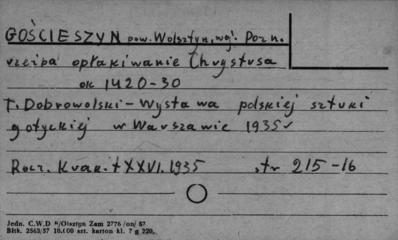 GOŚCIESZYN pow. Wolsztyn, woj. Pozn.
rzeźba opłakiwanie Chrystusa
ok 1420-30
T. Dobrowolski - Wystawa polskiej sztuki
gotyckiej w Warszawie 1935
Rocz. Krak. t XXVI. 1935 str 215-16
Jedn. C.W.D Olsztyn Zam 2776 /on/ 57
Bltk. 2563/57 10.000 szt. karton kl. 7 g 220.